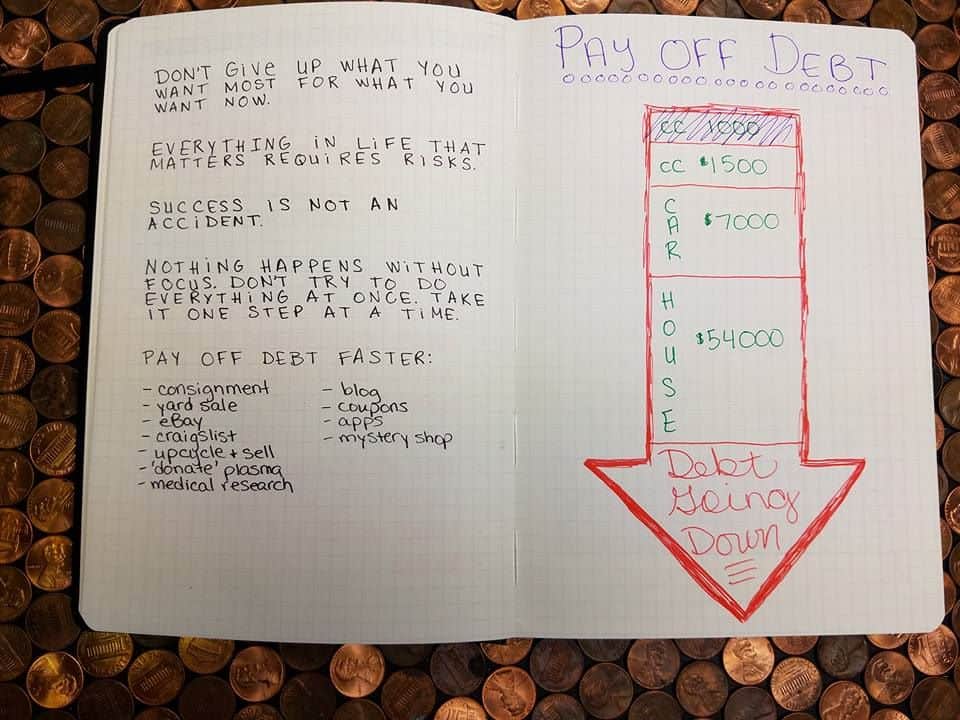 DON'T GIVE UP WHAT YOU
WANT MOST FOR WHAT YOU
WANT NOW.
EVERYTHING IN LIFE THAT
MATTERS REQUIRES RISKS.
SUCCESS IS NOT AN
ACCIDENT.
NOTHING HAPPENS WITHOUT
FOCUS. DON'T TRY TO DO
EVERYTHING AT ONCE. TAKE
IT ONE STEP AT A TIME.
PAY OFF DEBT FASTER:
- consignment
- yard sale
- eBay
- craigslist
- upcycle + sell
- 'donate' plasma
- medical research
- blog
- coupons
- apps
- mystery shop
PAY OFF DEBT
CC 1000
CC $1500
CAR $7000
HOUSE $54000
Debt
Going
Down